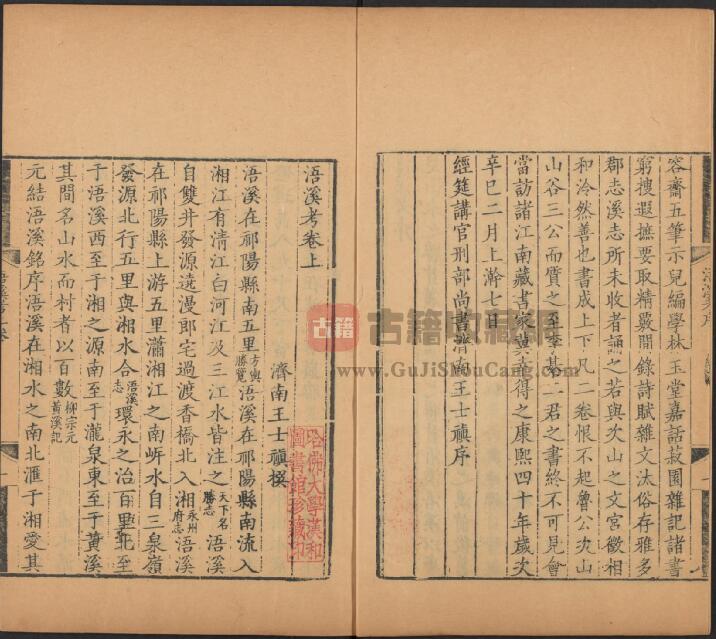 容齋五筆示兒編學林玉堂嘉話菽園雜記諸書
窮搜遐摭要取精覈間錄詩賦雜文汰俗存雅多
郡志溪志所未收者誦之若與次山之文宮徵相
和泠然善也書成上下凡二卷恨不起魯公次山
山谷三公而質之至李綦二君之書終不可見會
當訪諸江南藏書家冀幸得之康熙四十年歲次
辛巳二月上澣七日
經筵講官刑部尚書濟南王士禛序
浯溪考卷上
濟南王士禛撰
浯溪在祁陽縣南五里方輿勝覽浯溪在祁陽縣南流入
湘江有清江白河江及三江水皆注之天下名勝志浯溪
自雙井發源遶漫郎宅過渡香橋北入湘永州府志浯溪
在祁陽縣上游五里瀟湘江之南岍水自三泉嶺
發源北行五里與湘水合浯溪志環永之治百里北至
于浯溪西至于湘之源南至于瀧泉東至于黃溪
其間名山水而村者以百數柳宗元黃溪記
元結浯溪銘序浯溪在湘水之南北滙于湘愛其
哈佛大學漢和圖書館珍藏印
古籍
www.GuJiShouCang.com